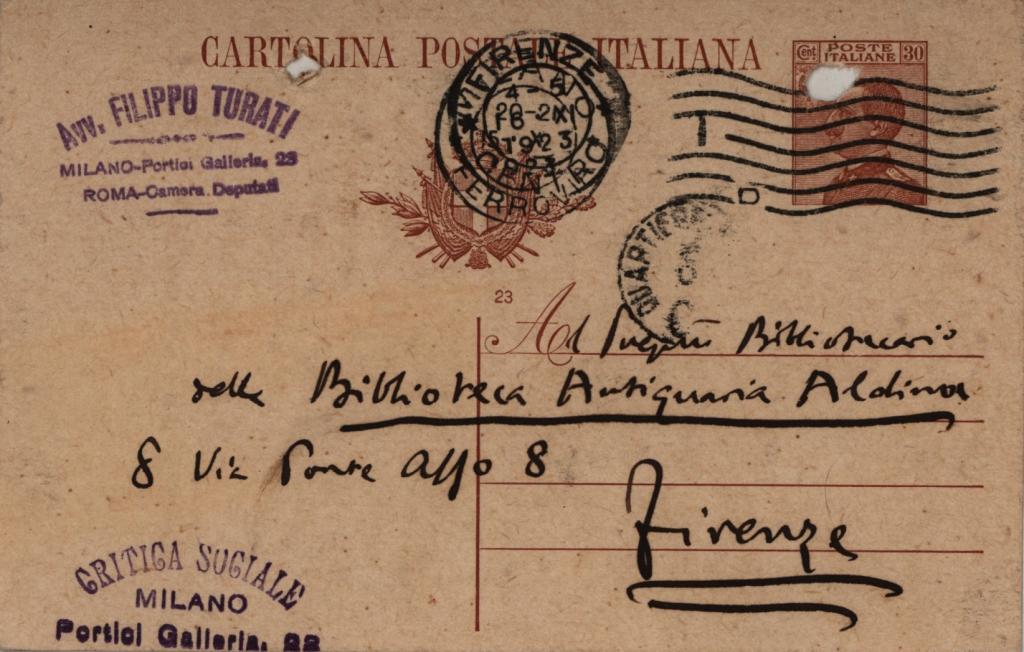 CARTOLINA POSTALE ITALIANA
Cent POSTE ITALIANE 30
Avv. FILIPPO TURATI
MILANO-Portici Galleria, 23
ROMA-Camera Deputati
FIRENZE
FERROVIA
QUARTIERE
23
Al Bibliotecario
della Biblioteca Antiquaria Aldina
8 Via Ponte Asso 8
Firenze
CRITICA SOCIALE
MILANO
Portici Galleria, 23